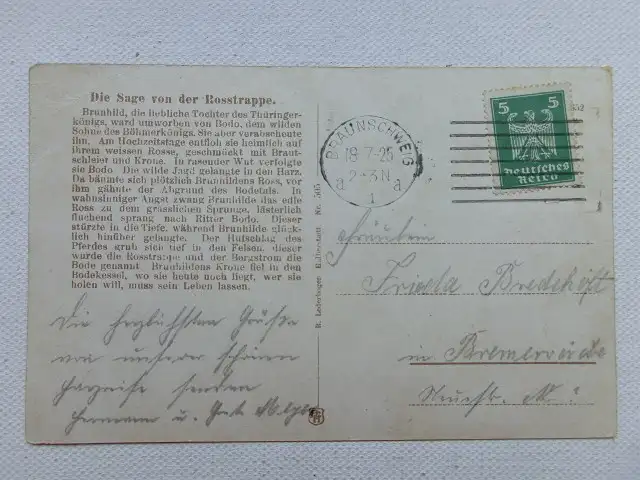 Die Sage von der Rosstrappe.
Brunhild, die liebliche Tochter des Thüringer-
königs, ward umworben von Bodo, dem wilden
Sohne des Böhmerkönigs. Sie aber verabscheute
ihn. Am Hochzeitstage entfloh sie heimlich auf
ihrem weissen Rosse, geschmückt mit Braut-
schleier und Krone. In rasender Wut verfolgte
sie Bodo. Die wilde Jagd gelangte in den Harz.
Da bäumte sich plötzlich Brunhildens Ross, vor
ihm gähnte der Abgrund des Bodetals. In
wahnsinniger Angst zwang Brunhilde das edle
Ross zu dem grässlichen Sprunge, lästerlich
fluchend sprang nach Ritter Bodo. Dieser
stürzte in die Tiefe, während Brunhilde glück-
lich hinüber gelangte. Der Hufschlag des
Pferdes grub sich tief in den Felsen, dieser
wurde die Rosstrappe und der Bergstrom die
Bode genannt. Brunhildens Krone fiel in den
Bodekessel, wo sie heute noch liegt, wer sie
holen will, muss sein Leben lassen.
Die herzlichsten Grüße
von unserer schönen
Harzreise senden
Hermann u.
R. Lederbogen Halberstadt Nr. 505
BRAUNSCHWEIG
18·7·25
2-3N
a 1 a
5 5
Deutsches
Reich
Fräulein
Frieda Bredehöft
in Bremervörde